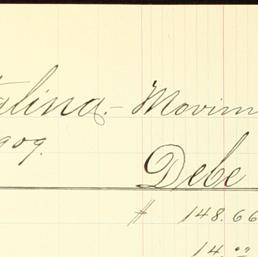 talina.- Movim
909.
Debe
# 148.66
14.00